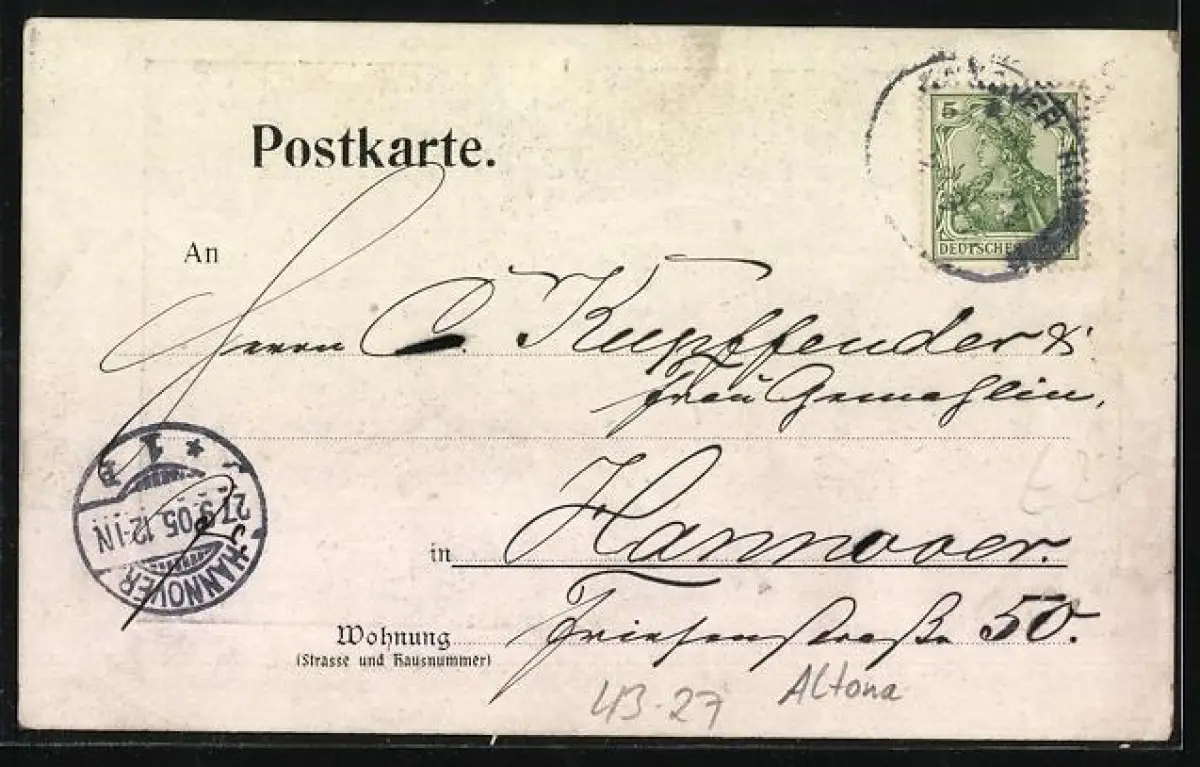 Postkarte.
HANNOVER
5
DEUTSCHES REICH
An
Herrn C. Kupffender &
Frau Gemahlin,
in Hannover.
Wohnung Friesenstraße 50.
(Strasse und Hausnummer)
* 1
27.9.05. 12-1N
HANNOVER
43-27 Altona